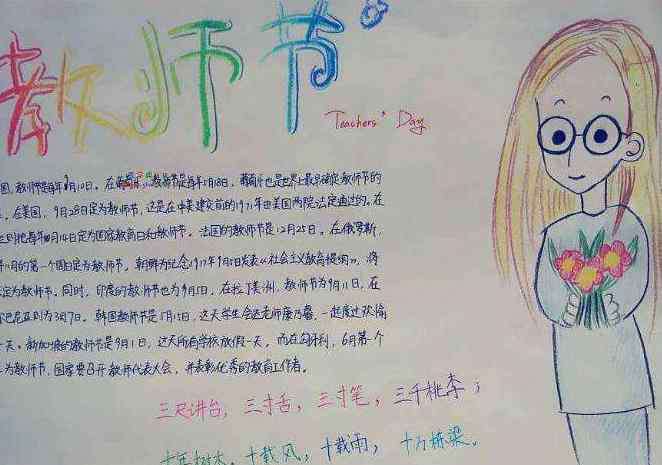 教师节
Teachers' Day
国,教师节是每年9月10日。在葡萄牙,教师节是每年5月18日,葡萄牙也是世界上最早确定教师节的
。在美国,9月28日定为教师节,这是在中美建交前的1971年由美国两院法定通过的。在
则把每年月14日定为国家教育日和教师节。法国的教师节是12月25日。在俄罗斯,
月的第一个周日定为教师节,朝鲜为纪念1977年9月5日发表《社会主义教育提纲》,将
定为教师节。同时,印度的教师节也为9月5日,在拉丁美洲,教师节为9月11日,在
巴尼亚则为3月7日。韩国教师节是5月15日,这天学生会送老师康乃馨,一起度过欢愉
一天。新加坡的教师节是9月1日,这天所有学校放假一天。而在匈牙利,6月第一个
为教师节,国家要召开教师代表大会,并表彰优秀的教育工作者。
三尺讲台,三寸舌,三寸笔,三千桃李;
十年树木,十载风,十载雨,十万栋梁。